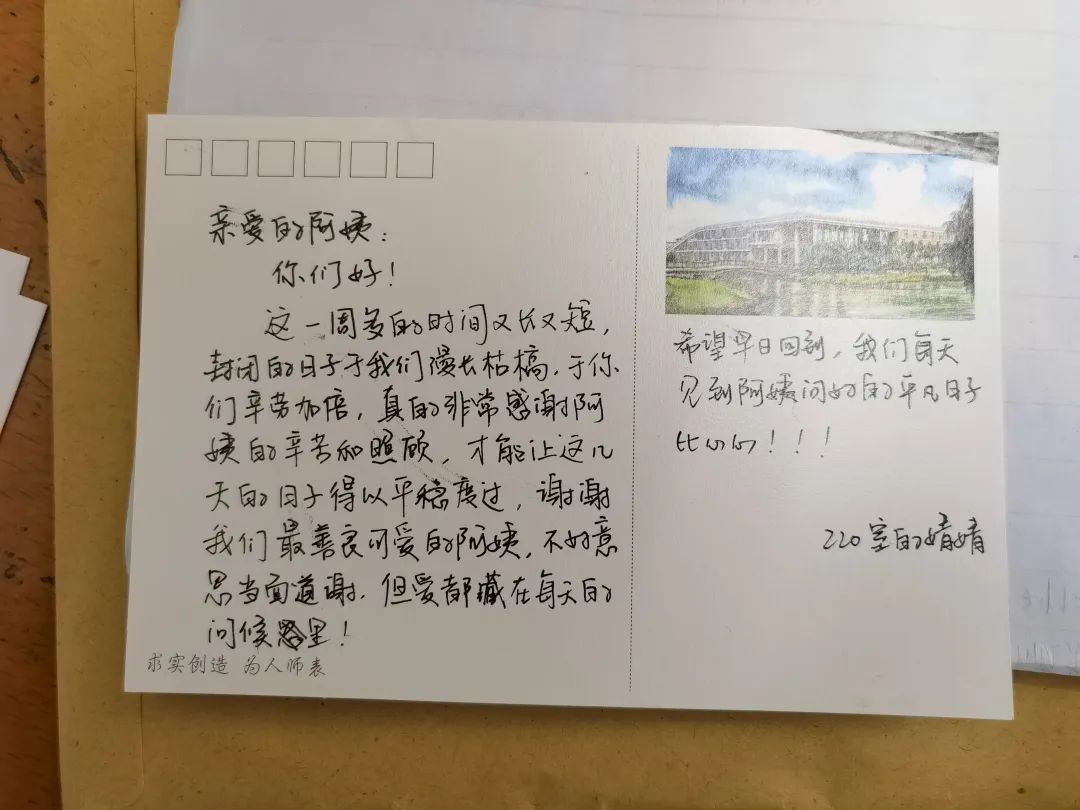 亲爱的阿姨:
你们好!
这一周多的时间又长又短,
封闭的日子于我们漫长枯槁,于你
们辛苦加倍,真的非常感谢阿
姨的辛苦和照顾,才能让这几
天的日子得以平稳度过,谢谢
我们最善良可爱的阿姨,不好意
思当面道谢,但爱都藏在每天的
问候里!
求实创造 为人师表
希望早日回到,我们每天
见到阿姨问好的平凡日子
比心心!!!
220室的婧婧